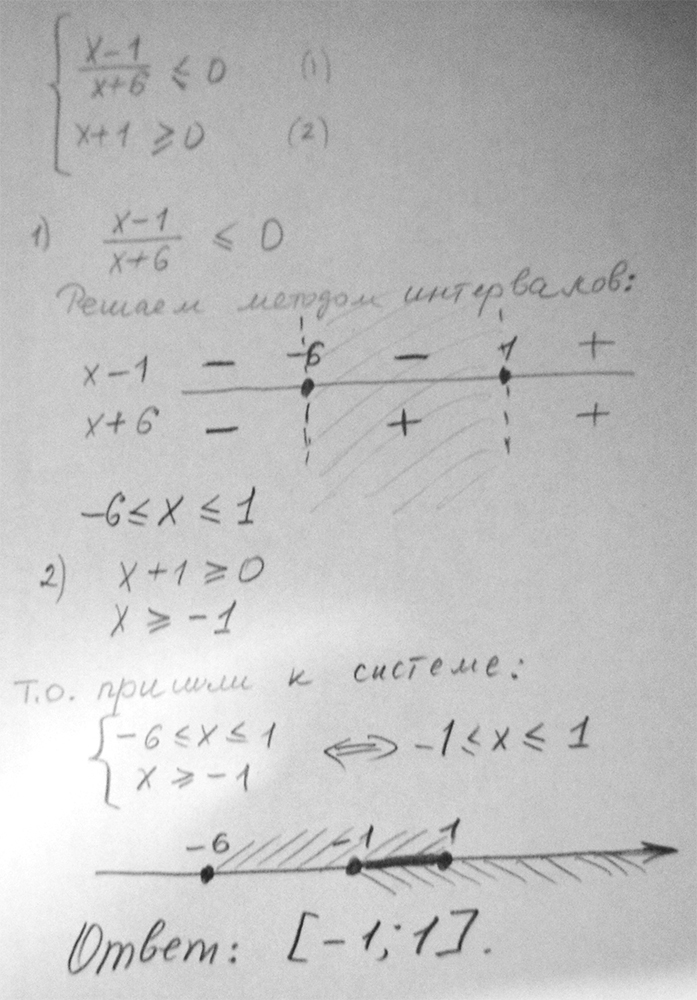 x-1/x+6 ≤ 0 (1)
x+1 ≥ 0 (2)
1) x-1/x+6 ≤ 0
Решаем методом интервалов:
-6 1
x-1 - - +
x+6 - + +
-6 ≤ x ≤ 1
2) x+1 ≥ 0
x ≥ -1
Т.о. пришли к системе:
{ -6 ≤ x ≤ 1 ⟺ -1 ≤ x ≤ 1
x ≥ -1
-6 -1 1
Ответ: [-1; 1].